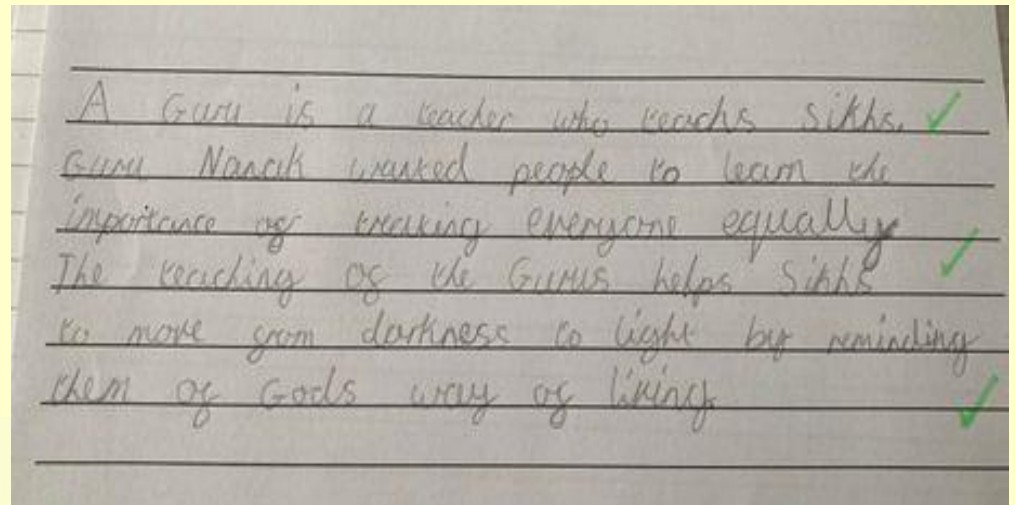 A Guru is a teacher who teachs Sikhs.
Guru Nanak wanted people to learn the
importance of treating everyone equally
The teaching of the Gurus helps Sikhs
to move from darkness to light by reminding
them of Gods way of living